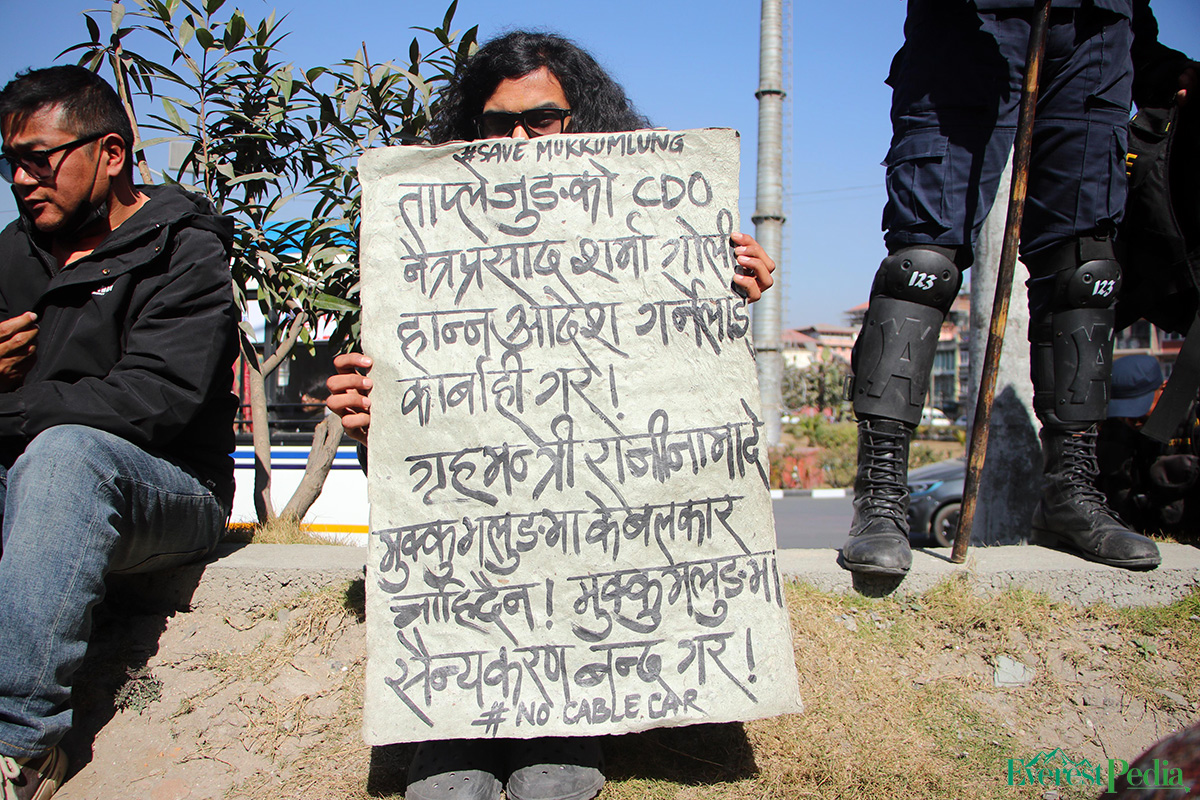 #SAVE MUKKUMLUNG
ताप्लेजुङको CDO
नेत्रप्रसाद शर्मा गोली
हान्न आदेश गर्नेलाई
कार्बाही गर!
गृहमन्त्री राजीनामा दे
मुक्कुमलुङमा केबलकार
चाहिदैन! मुक्कुमलुङमा
सैन्यकरण बन्द गर!
#NO CABLE CAR
123
123
EverestPedia